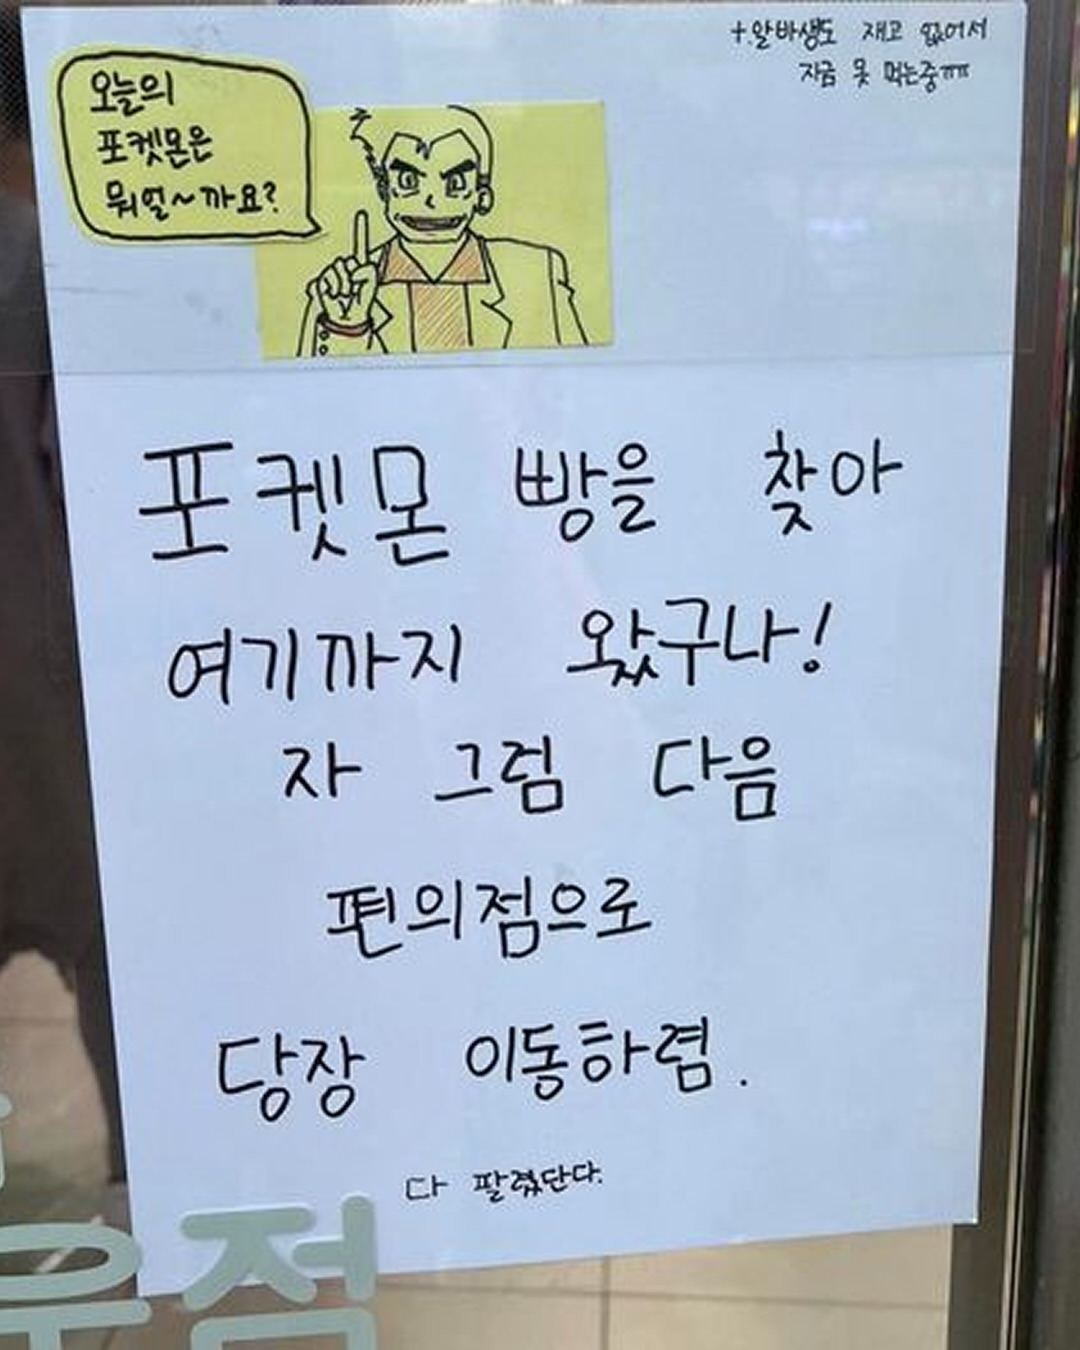 +.알바생도 재고 없어서
지금 못 먹는중ㅠㅠ
오늘의
포켓몬은
뭐얼~까요?
포켓몬 빵을 찾아
여기까지 왔구나!
자 그럼 다음
편의점으로
당장 이동하렴.
다 팔렸단다.
점